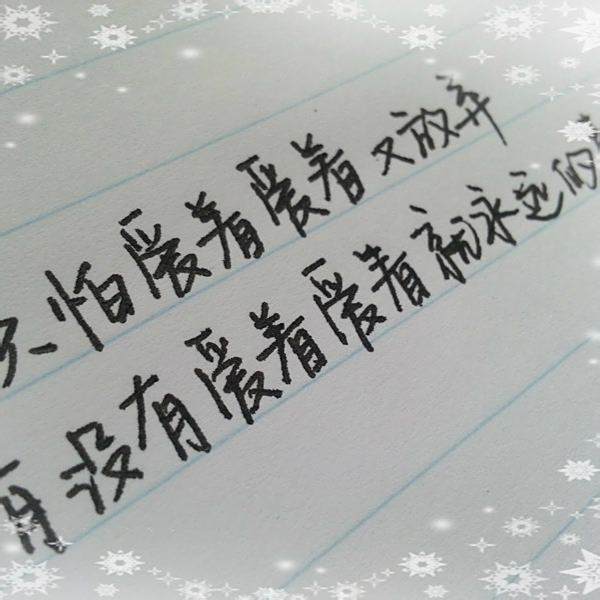 不怕爱着爱着又放弃
有没有爱着爱着就永远的